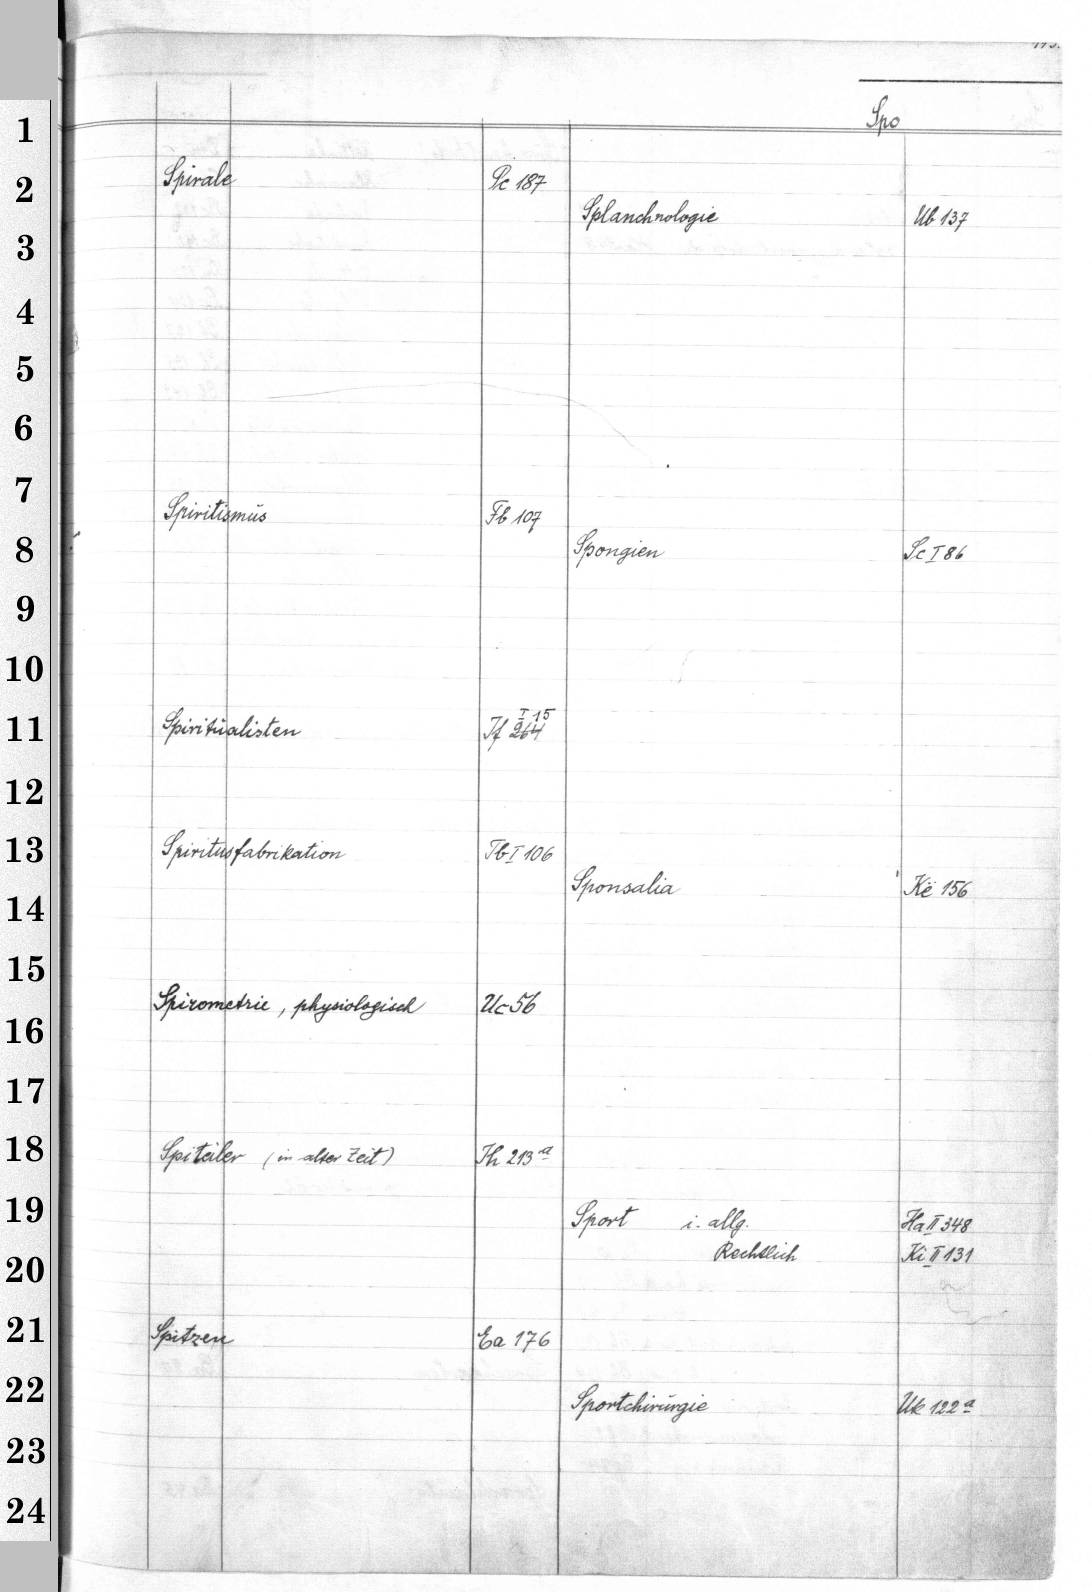 Spo
1
2
3
4
5
6
7
8
9
10
11
12
13
14
15
16
17
18
19
20
21
22
23
24
Spirale Pc 187
Spiritismus Fb 107
Spiritualisten If 264 I 15
Spiritusfabrikation Tb I 106
Spirometrie, physiologisch Uc 56
Spiteiler (in alter Zeit) Ih 213 a
Spitzen Ea 176
Splanchnologie Ub 137
Spongien Sc I 86
Sponsalia Kë 156
Sport i. allg. Ha II 348
Rechtlich Ki II 131
Sportchirurgie Uk 122 a